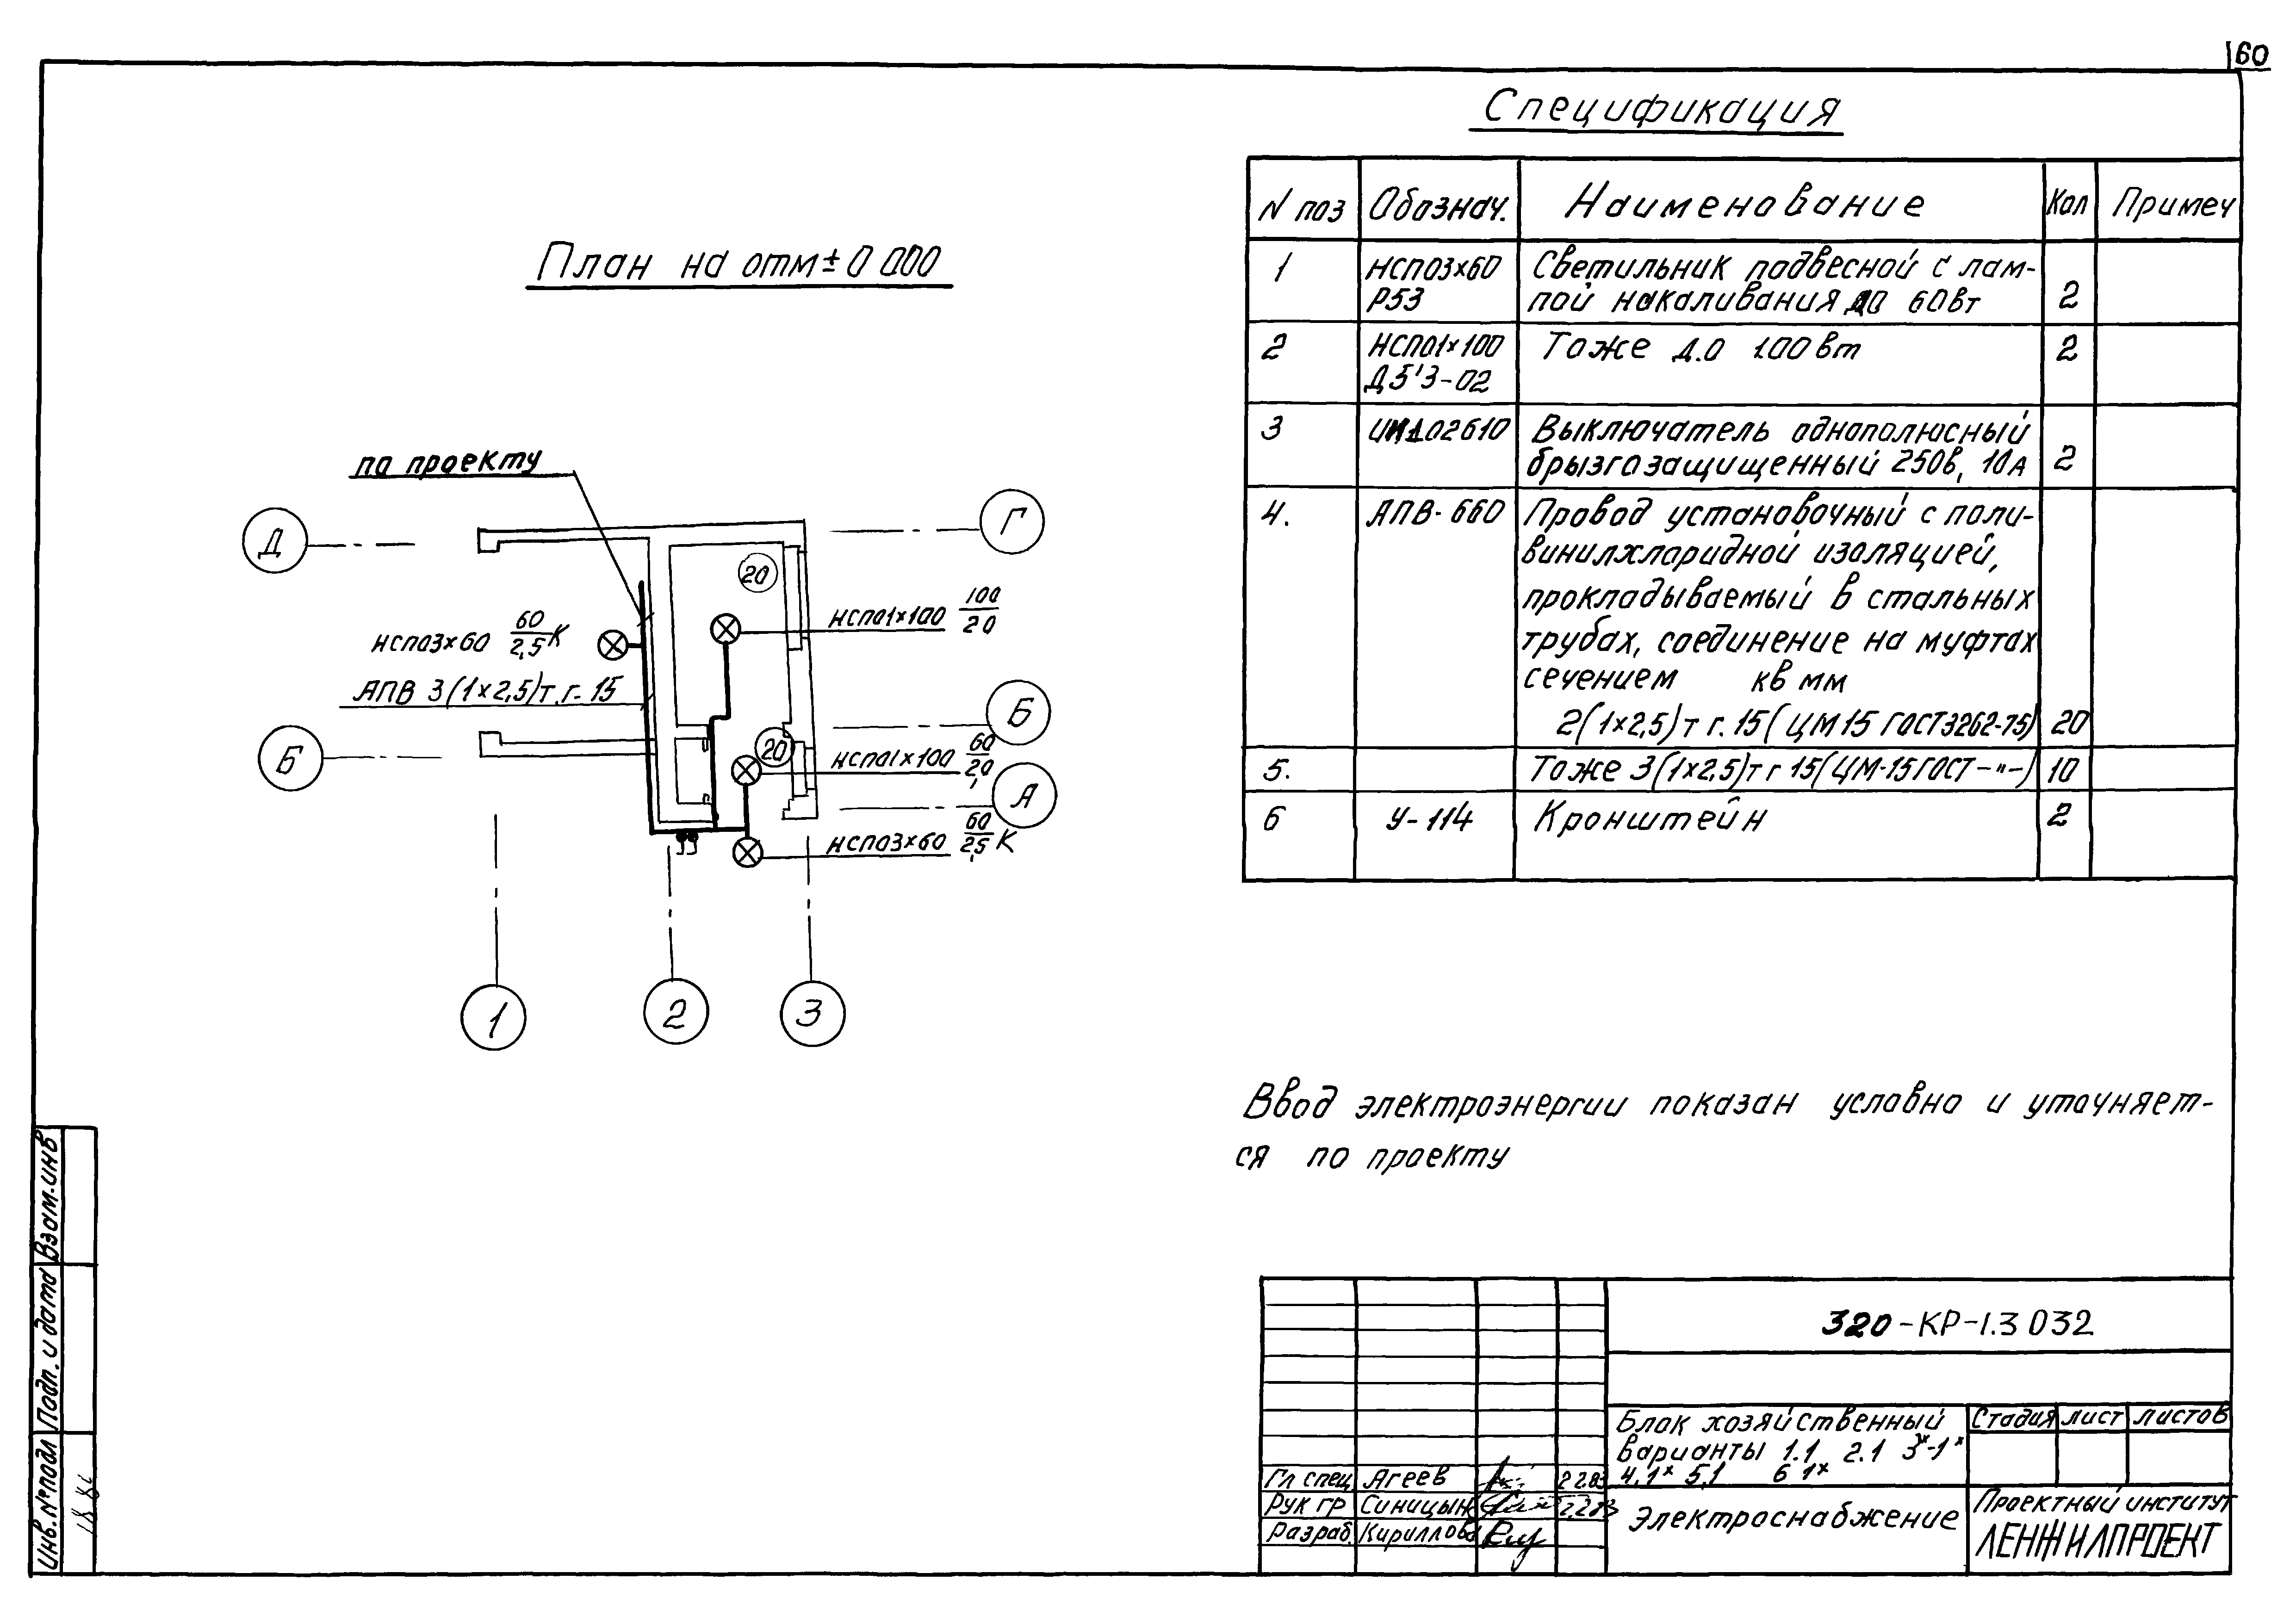 60
Спецификация
План на отм ± 0 000
N поз Обознач. Наименование Кол Примеч
1 НСП03×60 Светильник подвесной с лам-
Р53 пой накаливания до 60вт 2
2 НСП01×100 Тоже до 100 вт 2
Д5'3-02
3 02610 Выключатель однополюсный
брызгозащищенный 250в, 10А 2
4. АПВ-660 Провод установочный с поли-
винилхларидной изоляцией,
прокладываемый в стальных
трубах, соединение на муфтах
сечением кв мм
2(1×2,5)т г. 15 (ЦМ 15 ГОСТ3262-75) 20
5. Тоже 3(1×2,5)т г 15(ЦМ-15 ГОСТ-"-) 10
6 У-114 Кронштейн 2
по проекту
Д
Г
20
НСП01×100 100/20
НСП03×60 60/2,5 К
АПВ 3(1×2,5)т.г.-15
Б
Б
20
НСП01×100 60/2,0
А
НСП03×60 60/2,5 К
1
2
3
Ввод электроэнергии показан условно и уточняет-
ся по проекту
320-КР-1.3 032
Блок хозяйственный
варианты 1.1 2.1 3ˣ-1ˣ
4,1ˣ 5,1 6 1ˣ
Стадия лист листов
Гл спец Агеев 2 2.83
Рук гр Синицын 2.2.83
Разраб. Кириллова
Электроснабжение
Проектный институт
ЛЕНЖИЛПРОЕКТ
Взам.инв
Подп. и дата
Инв.№подл